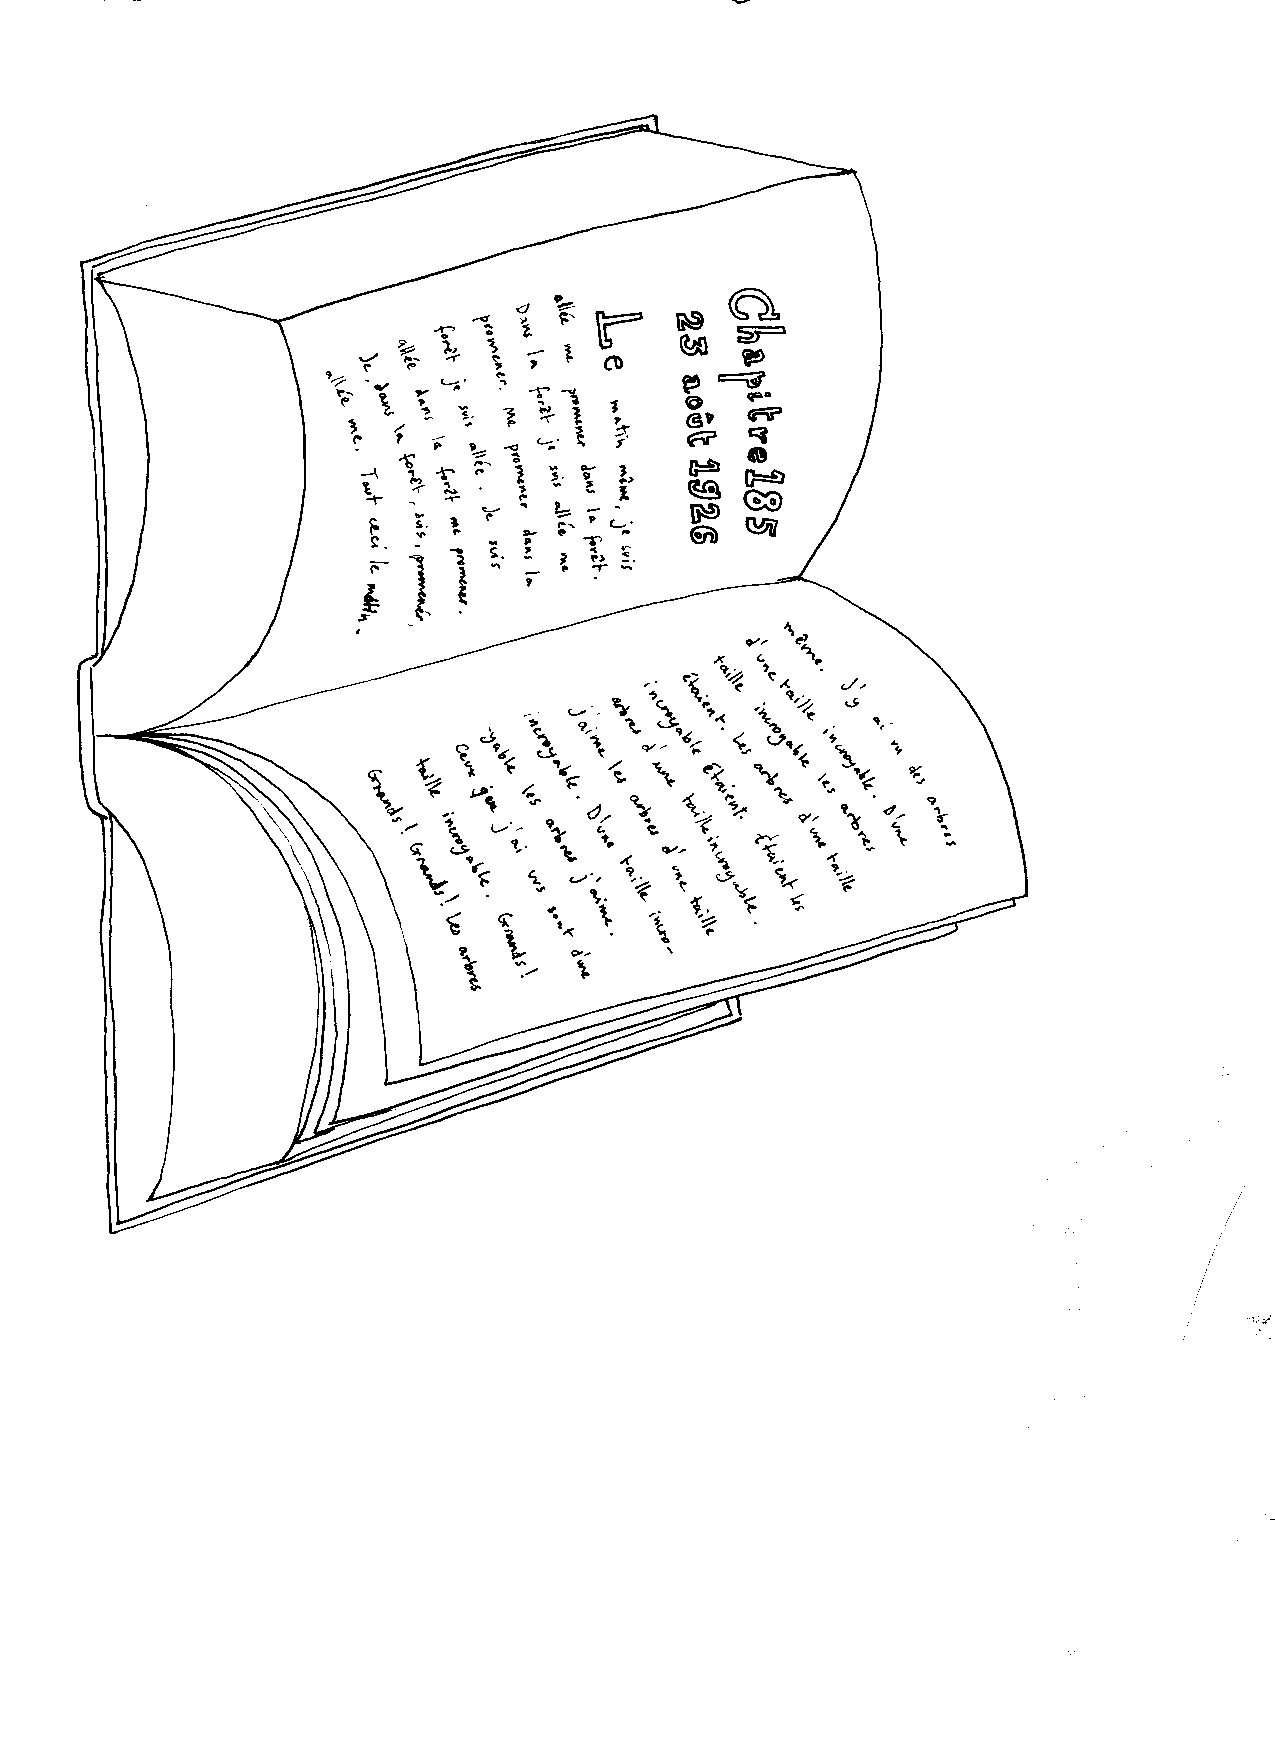 Chapitre 185
23 août 1926
Le matin même, je suis
allée me promener dans la forêt.
Dans la forêt je suis allée me
promener. Me promener dans la
forêt je suis allée. Je suis
allée dans la forêt me promener.
Je, dans la forêt, suis, promener,
allée me. Tout ceci le matin
même. J'y ai vu des arbres
d'une taille incroyable. D'une
taille incroyable les arbres
étaient. Les arbres d'une taille
incroyable étaient. Étaient les
arbres d'une taille incroyable.
J'aime les arbres d'une taille
incroyable. D'une taille incro-
yable les arbres j'aime.
Ceux que j'ai vus sont d'une
taille incroyable. Grands!
Grands! Grands! Les arbres